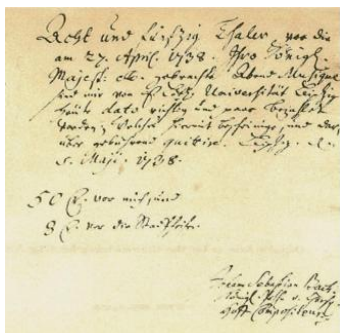 Acht und Fünfzig Thaler, vor die
am 27. April. 1738. Ihro Königl.
Majest: etc. gebrachte Abend Musique
sind mir von E. Löbl. Universität Leipzig
heüte dato richtig und paar bezahlet
worden; Welches hiermit bescheinige, und dar-
über gebührend quittire. Leipzig. d.
5. Maji. 1738.
50 rl. vor mich, und
8 rl. vor die Stadtpfeifer.
Johann Sebastian Bach.
Königl. Pohl. u. Churf.
Hoff Compositeur